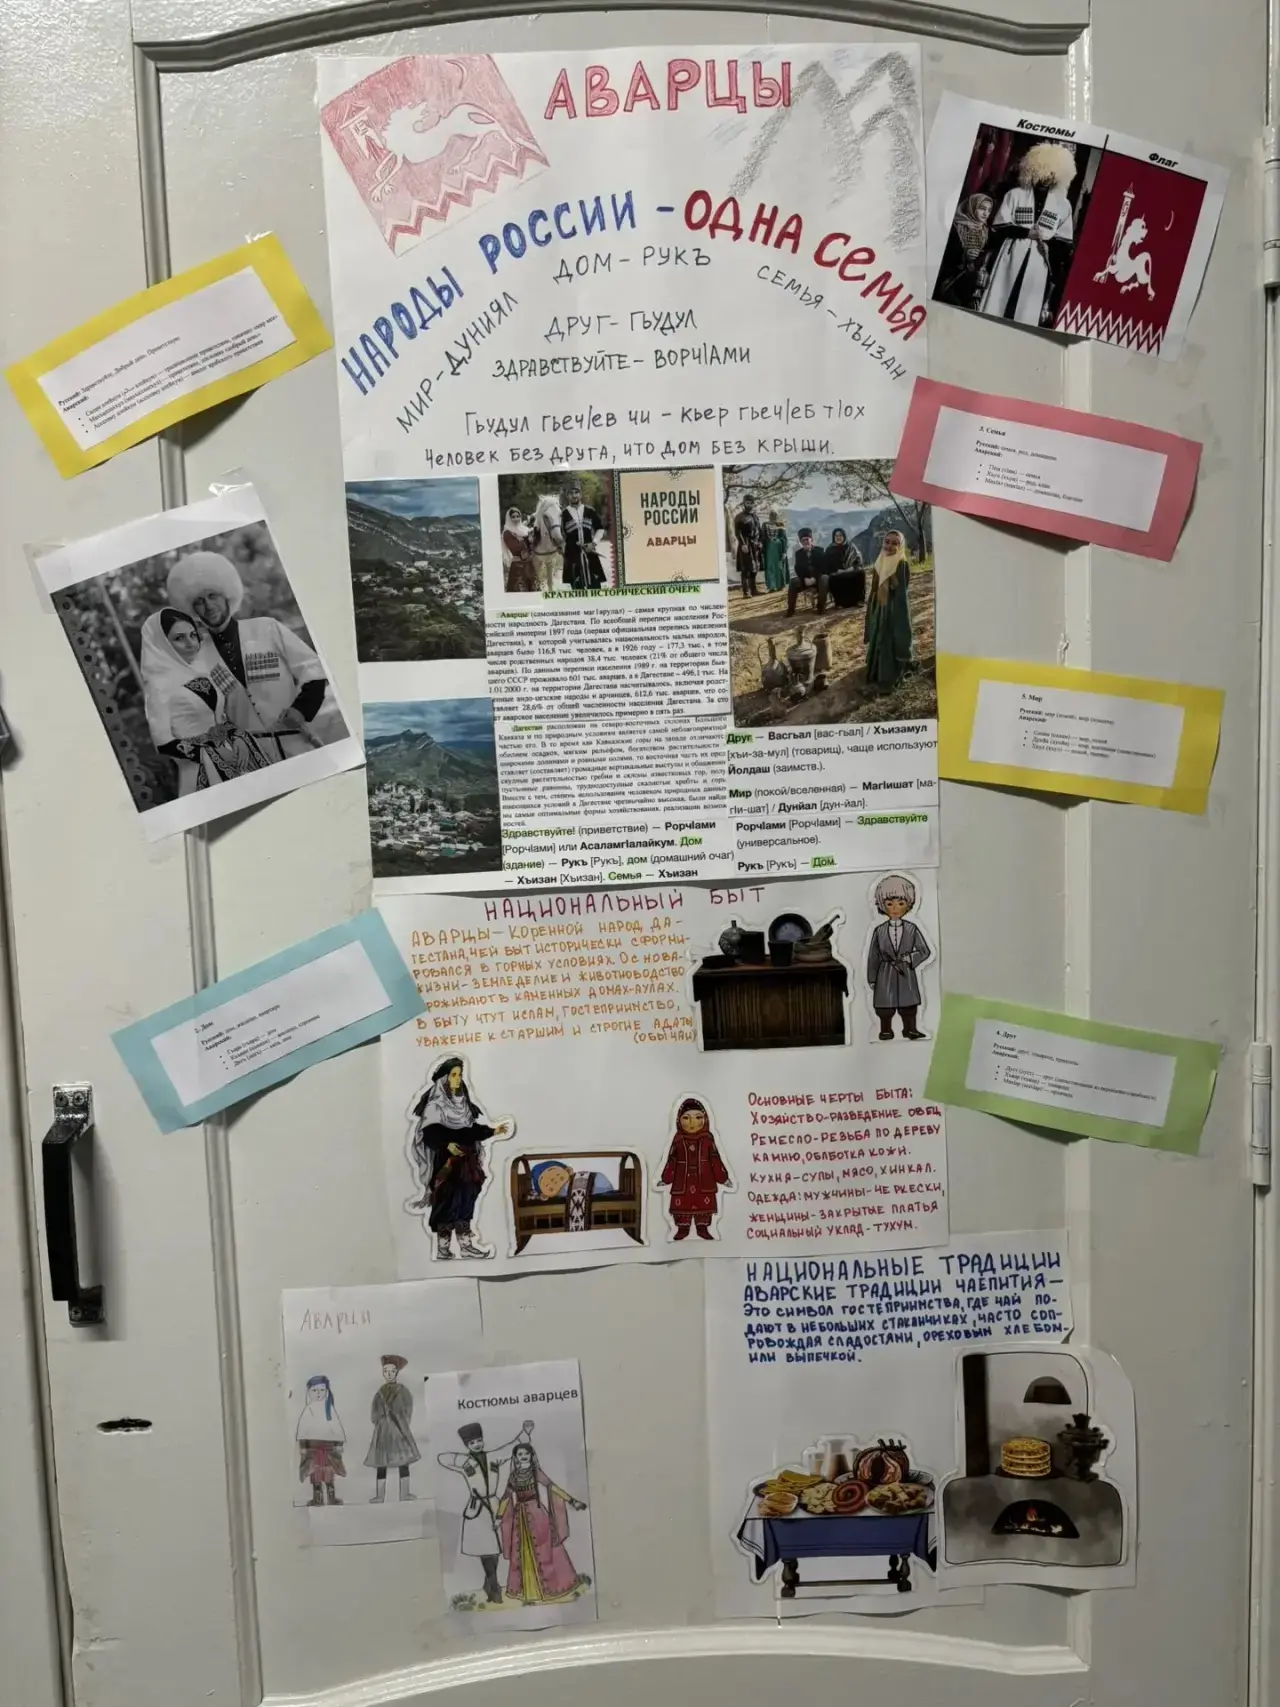 АВАРЦЫ
НАРОДЫ РОССИИ - ОДНА СЕМЬЯ
МИР - ДУНИЯЛ
ДОМ - РУКЪ
СЕМЬЯ - ХЪИЗАН
ДРУГ - ГЬУДУЛ
ЗДРАВСТВУЙТЕ - ВОРЧӀАМИ
Гьудул гьечӀев чи - кьер гьечӀеб тӀох
Человек без друга, что дом без крыши.
Костюмы
Флаг
Русский: Здравствуйте, Добрый день, Приветствую
Аварский:
3. Семья
Русский: семья, род, домашние
Аварский:
НАРОДЫ
РОССИИ
АВАРЦЫ
КРАТКИЙ ИСТОРИЧЕСКИЙ ОЧЕРК
Аварцы (самоназвание магӀарулал) – самая крупная по числен-
ности народность Дагестана. По всеобщей переписи населения Рос-
сийской империи 1897 года (первая официальная перепись населения
Дагестана), в которой учитывалась национальность малых народов,
аварцев было 116,8 тыс. человек, а в 1926 году – 177,3 тыс., в том
числе родственных народов 38,4 тыс. человек (21% от общего числа
аварцев). По данным переписи населения 1989 г. на территории быв-
шего СССР проживало 601 тыс. аварцев, а в Дагестане – 496,1 тыс. На
1.01.2000 г. на территории Дагестана насчитывалось, включая родст-
венные андо-цезские народы и арчинцев, 612,6 тыс. аварцев, что со-
ставляет 28,6% от общей численности населения Дагестана. За сто
лет аварское население увеличилось примерно в пять раз.
Дагестан расположен на северо-восточных склонах Большого
Кавказа и по природным условиям является самой неблагоприятной
частью его. В то время как Кавказские горы на западе отличаются
обилием осадков, мягким рельефом, богатством растительности
широкими долинами и ровными полями, то восточная часть их пред-
ставляет (составляет) громадные вертикальные выступы и обнаженные
скудные растительностью гребни и склоны известковых гор,
пустынные равнины, труднодоступные скалистые хребты и горы
Вместе с тем, степень использования человеком природных данных
имеющихся условий в Дагестане чрезвычайно высокая, были найде-
ны самые оптимальные формы хозяйствования, реализации возмож-
ностей.
Здравствуйте! (приветствие) — РорчӀами
[РорчӀами] или АсаламгӀалайкум. Дом
(здание) — Рукъ [Рукъ], дом (домашний очаг)
— Хъизан [Хъизан]. Семья — Хъизан
Друг — Васгьал [вас-гьал] / Хъизамул
[хъи-за-мул] (товарищ), чаще используют
Йолдаш (заимств.).
Мир (покой/вселенная) — МагӀишат [ма-
гӀи-шат] / Дунйал [дун-йал].
РорчӀами [РорчӀами] — Здравствуйте
(универсальное).
Рукъ [Рукъ] — Дом.
5. Мир
Русский: мир (покой), мир (планета)
Аварский:
НАЦИОНАЛЬНЫЙ БЫТ
АВАРЦЫ - КОРЕННОЙ НАРОД ДА-
ГЕСТАНА, ЧЕЙ БЫТ ИСТОРИЧЕСКИ СФОРМИ-
РОВАЛСЯ В ГОРНЫХ УСЛОВИЯХ. ОСНОВА
ЖИЗНИ - ЗЕМЛЕДЕЛИЕ И ЖИВОТНОВОДСТВО
ПРОЖИВАЮТ В КАМЕННЫХ ДОМАХ-АУЛАХ.
В БЫТУ ЧТУТ ИСЛАМ, ГОСТЕПРИИМСТВО,
УВАЖЕНИЕ К СТАРШИМ И СТРОГИЕ АДАТЫ
(ОБЫЧАИ)
2. Дом
Русский: дом, жилище, квартира
Аварский:
4. Друг
Русский: друг, товарищ, приятель
Аварский:
ОСНОВНЫЕ ЧЕРТЫ БЫТА:
ХОЗЯЙСТВО-РАЗВЕДЕНИЕ ОВЕЦ
РЕМЕСЛО-РЕЗЬБА ПО ДЕРЕВУ
КАМНЮ, ОБЛБОТКА КОЖИ.
КУХНЯ-СУПЫ, МЯСО, ХИНКАЛ.
ОДЕЖДА: МУЖЧИНЫ-ЧЕРКЕСКИ,
ЖЕНЩИНЫ-ЗАКРЫТЫЕ ПЛАТЬЯ
СОЦИАЛЬНЫЙ УКЛАД-ТУХУМ.
НАЦИОНАЛЬНЫЕ ТРАДИЦИИ
АВАРСКИЕ ТРАДИЦИИ ЧАЕПИТИЯ -
ЭТО СИМВОЛ ГОСТЕПРИИМСТВА, ГДЕ ЧАЙ ПО-
ДАЮТ В НЕБОЛЬШИХ СТАКАНЧИКАХ, ЧАСТО СОП-
РОВОЖДАЯ СЛАДОСТЯМИ, ОРЕХОВЫМ ХЛЕБОМ-
ИЛИ ВЫПЕЧКОЙ.
АВАРЦЫ
Костюмы аварцев